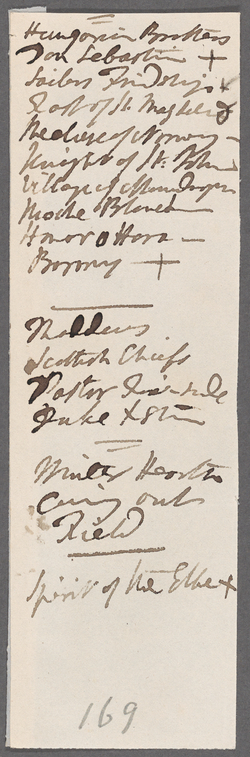 Hungarian Brothers
Don Sebastian +
Sailors Friendship +
Fast of St. Magdalen
Recluse of Norway -
Knight of St. John
Village of Mariendorpt
Roche Blanche
Honor O Hara -
Barony +
Thaddeus
Scottish Chiefs
Pastor Fire-side
Duke X
Winter Hearth
Coming out
Field
Spirit of the Elbe +
169